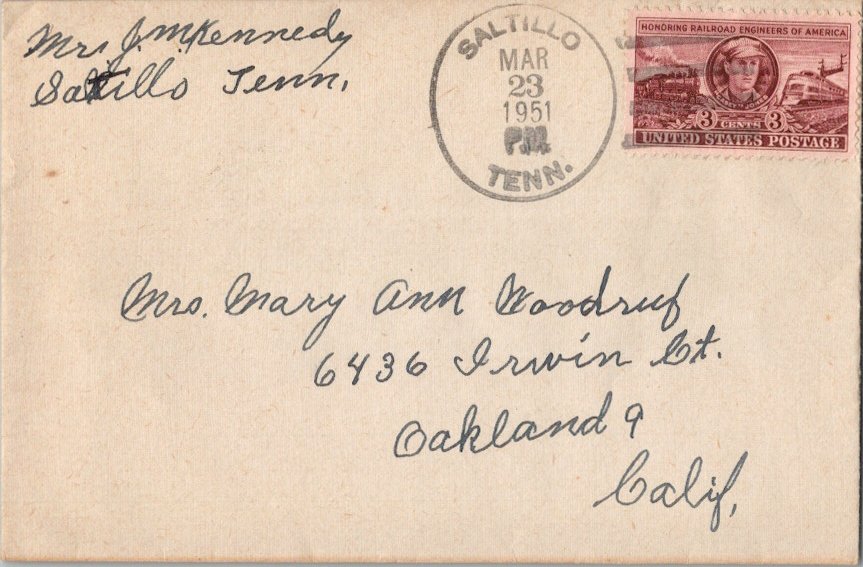 Mrs J. McKennedy
Saltillo Tenn.
SALTILLO
MAR
23
1951
PM
TENN.
HONORING RAILROAD ENGINEERS OF AMERICA
3 CENTS 3
UNITED STATES POSTAGE
Mrs. Mary Ann Woodruf
6436 Irwin Ct.
Oakland 9
Calif,